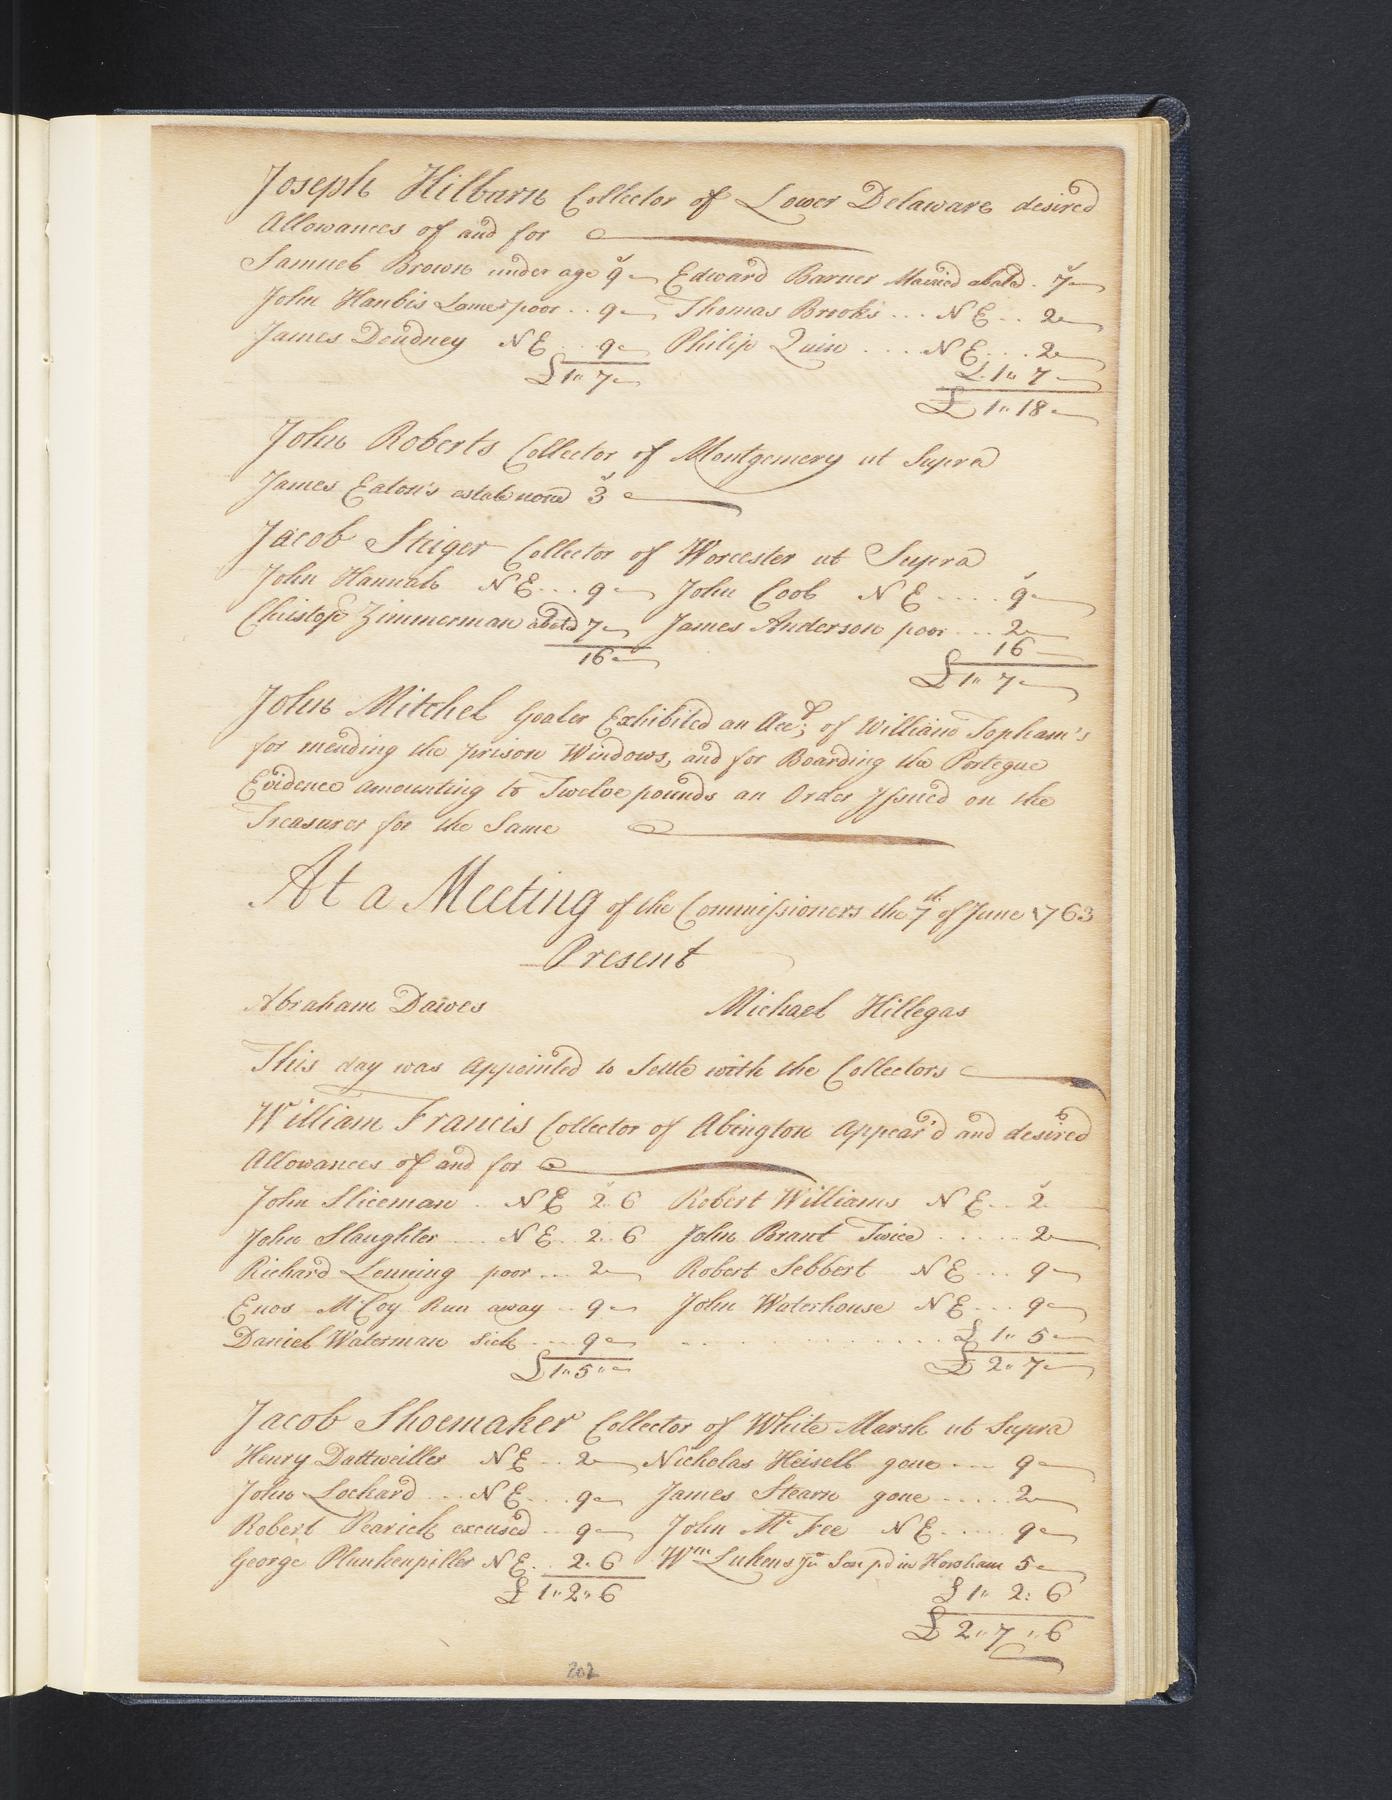 Joseph Hilbarn Collector of Lower Delaware desired
Allowances of and for
Samuel Brown under age 9 Edward Barner Maried abated . 7
John Hanbis Lame & poor .. 9 Thomas Brooks ... N E .. 2
James Deudney N E .. 9 Philip Quin .... N E ... 2
£ 1" 7 £ 1" 7
£ 1" 18
John Roberts Collector of Montgemery ut Supra
James Eaton's estate none 3
Jacob Steiger Collector of Worcester ut Supra
John Hannah N E ... 9 John Coob N E .... 9
Christop Zimmerman abatd 7 James Anderson poor ... 2
16 16
£ 1" 7
John Mitchel Goaler Exhibited an Acct; of William Topham's
for mending the prison Windows, and for Boarding the Portegue
Evidence amounting to Twelve pounds an Order Issued on the
Treasurer for the Same
At a Meeting of the Commissioners the 7th of June 1763
Present
Abraham Dawes Michael Hillegas
This day was Appointed to Settle with the Collectors
William Francis Collector of Abington Appear'd and desired
Allowances of and for
John Sliceman . N E 2.. 6 Robert Williams N E .. 2
John Slaughter ... N E .. 2.. 6 John Brant Twice ..... 2
Richard Lenning poor ... 2 Robert Sebbert N E ... 9
Enos McCoy Run away .. 9 John Waterhouse N E ... 9
Daniel Waterman Sick .... 9 .. ........ £ 1" 5
£ 1" 5 " £ 2" 7
Jacob Shoemaker Collector of White Marsh ut Supra
Henry Dattweiller N E .. 2 Nicholas Heisell gone ... 9
John Lochard ... N E ... 9 James Stearn gone ..... 2
Robert Pearich excused .. 9 John Mc Fee N E ..... 9
George Plunkenpiller N E . 2. 6 Wm Lukens Jur Son pd in Horsham 5
£ 1" 2" 6 £ 1" 2: 6
£ 2" 7 " 6
202